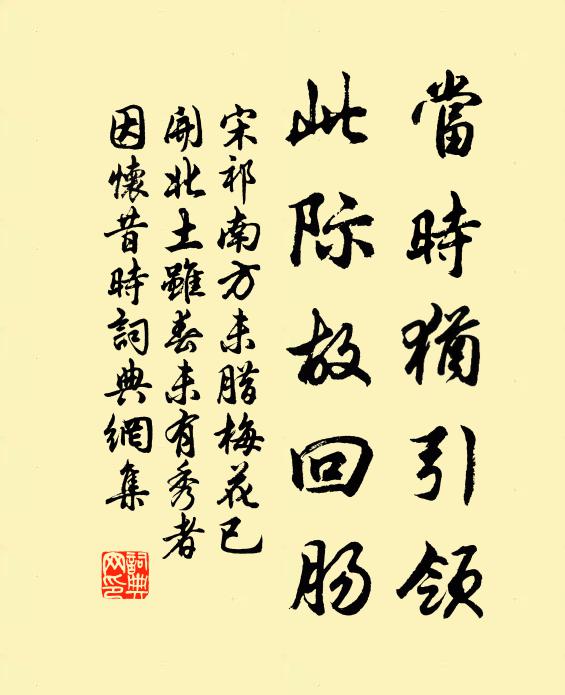 當時猶引領
此际故回肠
宋祁南方未腊梅花已
開北土雖春未有秀者
因懷昔時詞典網集
詞典网印